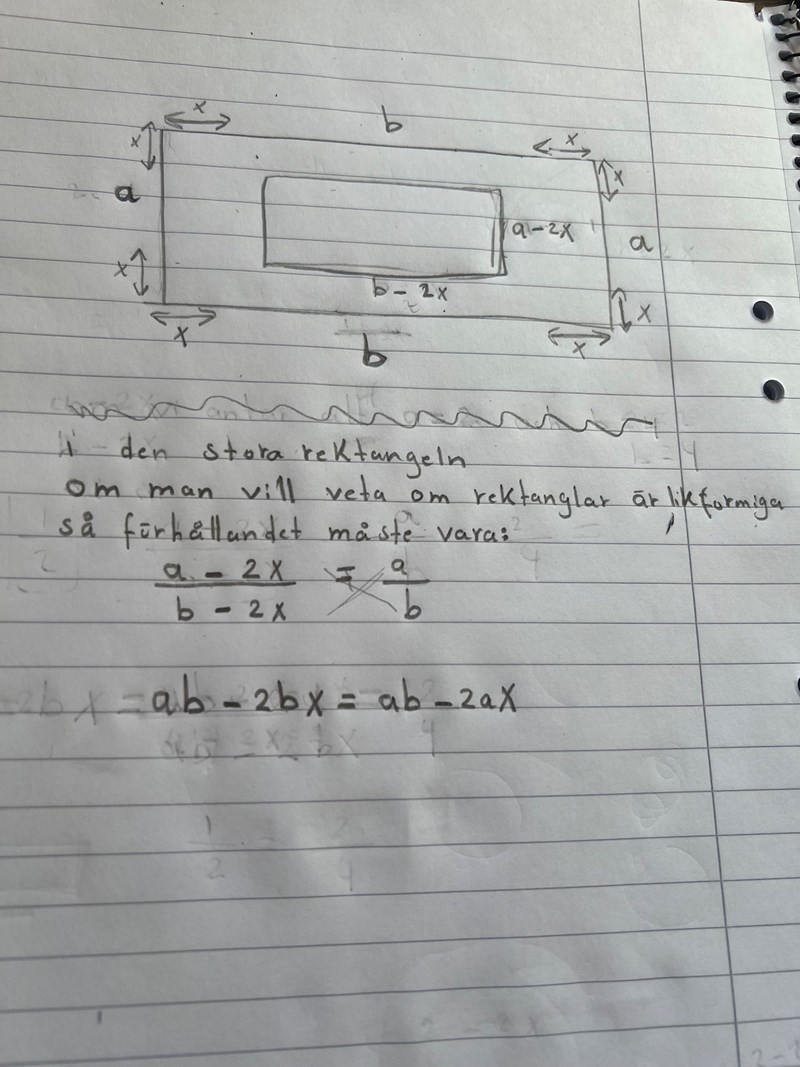 x
b
x
x
x
a
a-2x
a
x
b - 2x
x
x
b
x
i den stora rektangeln
Om man vill veta om rektanglar är likformiga
så förhållandet måste vara:
a - 2x = a
b - 2x b
ab - 2bx = ab - 2ax